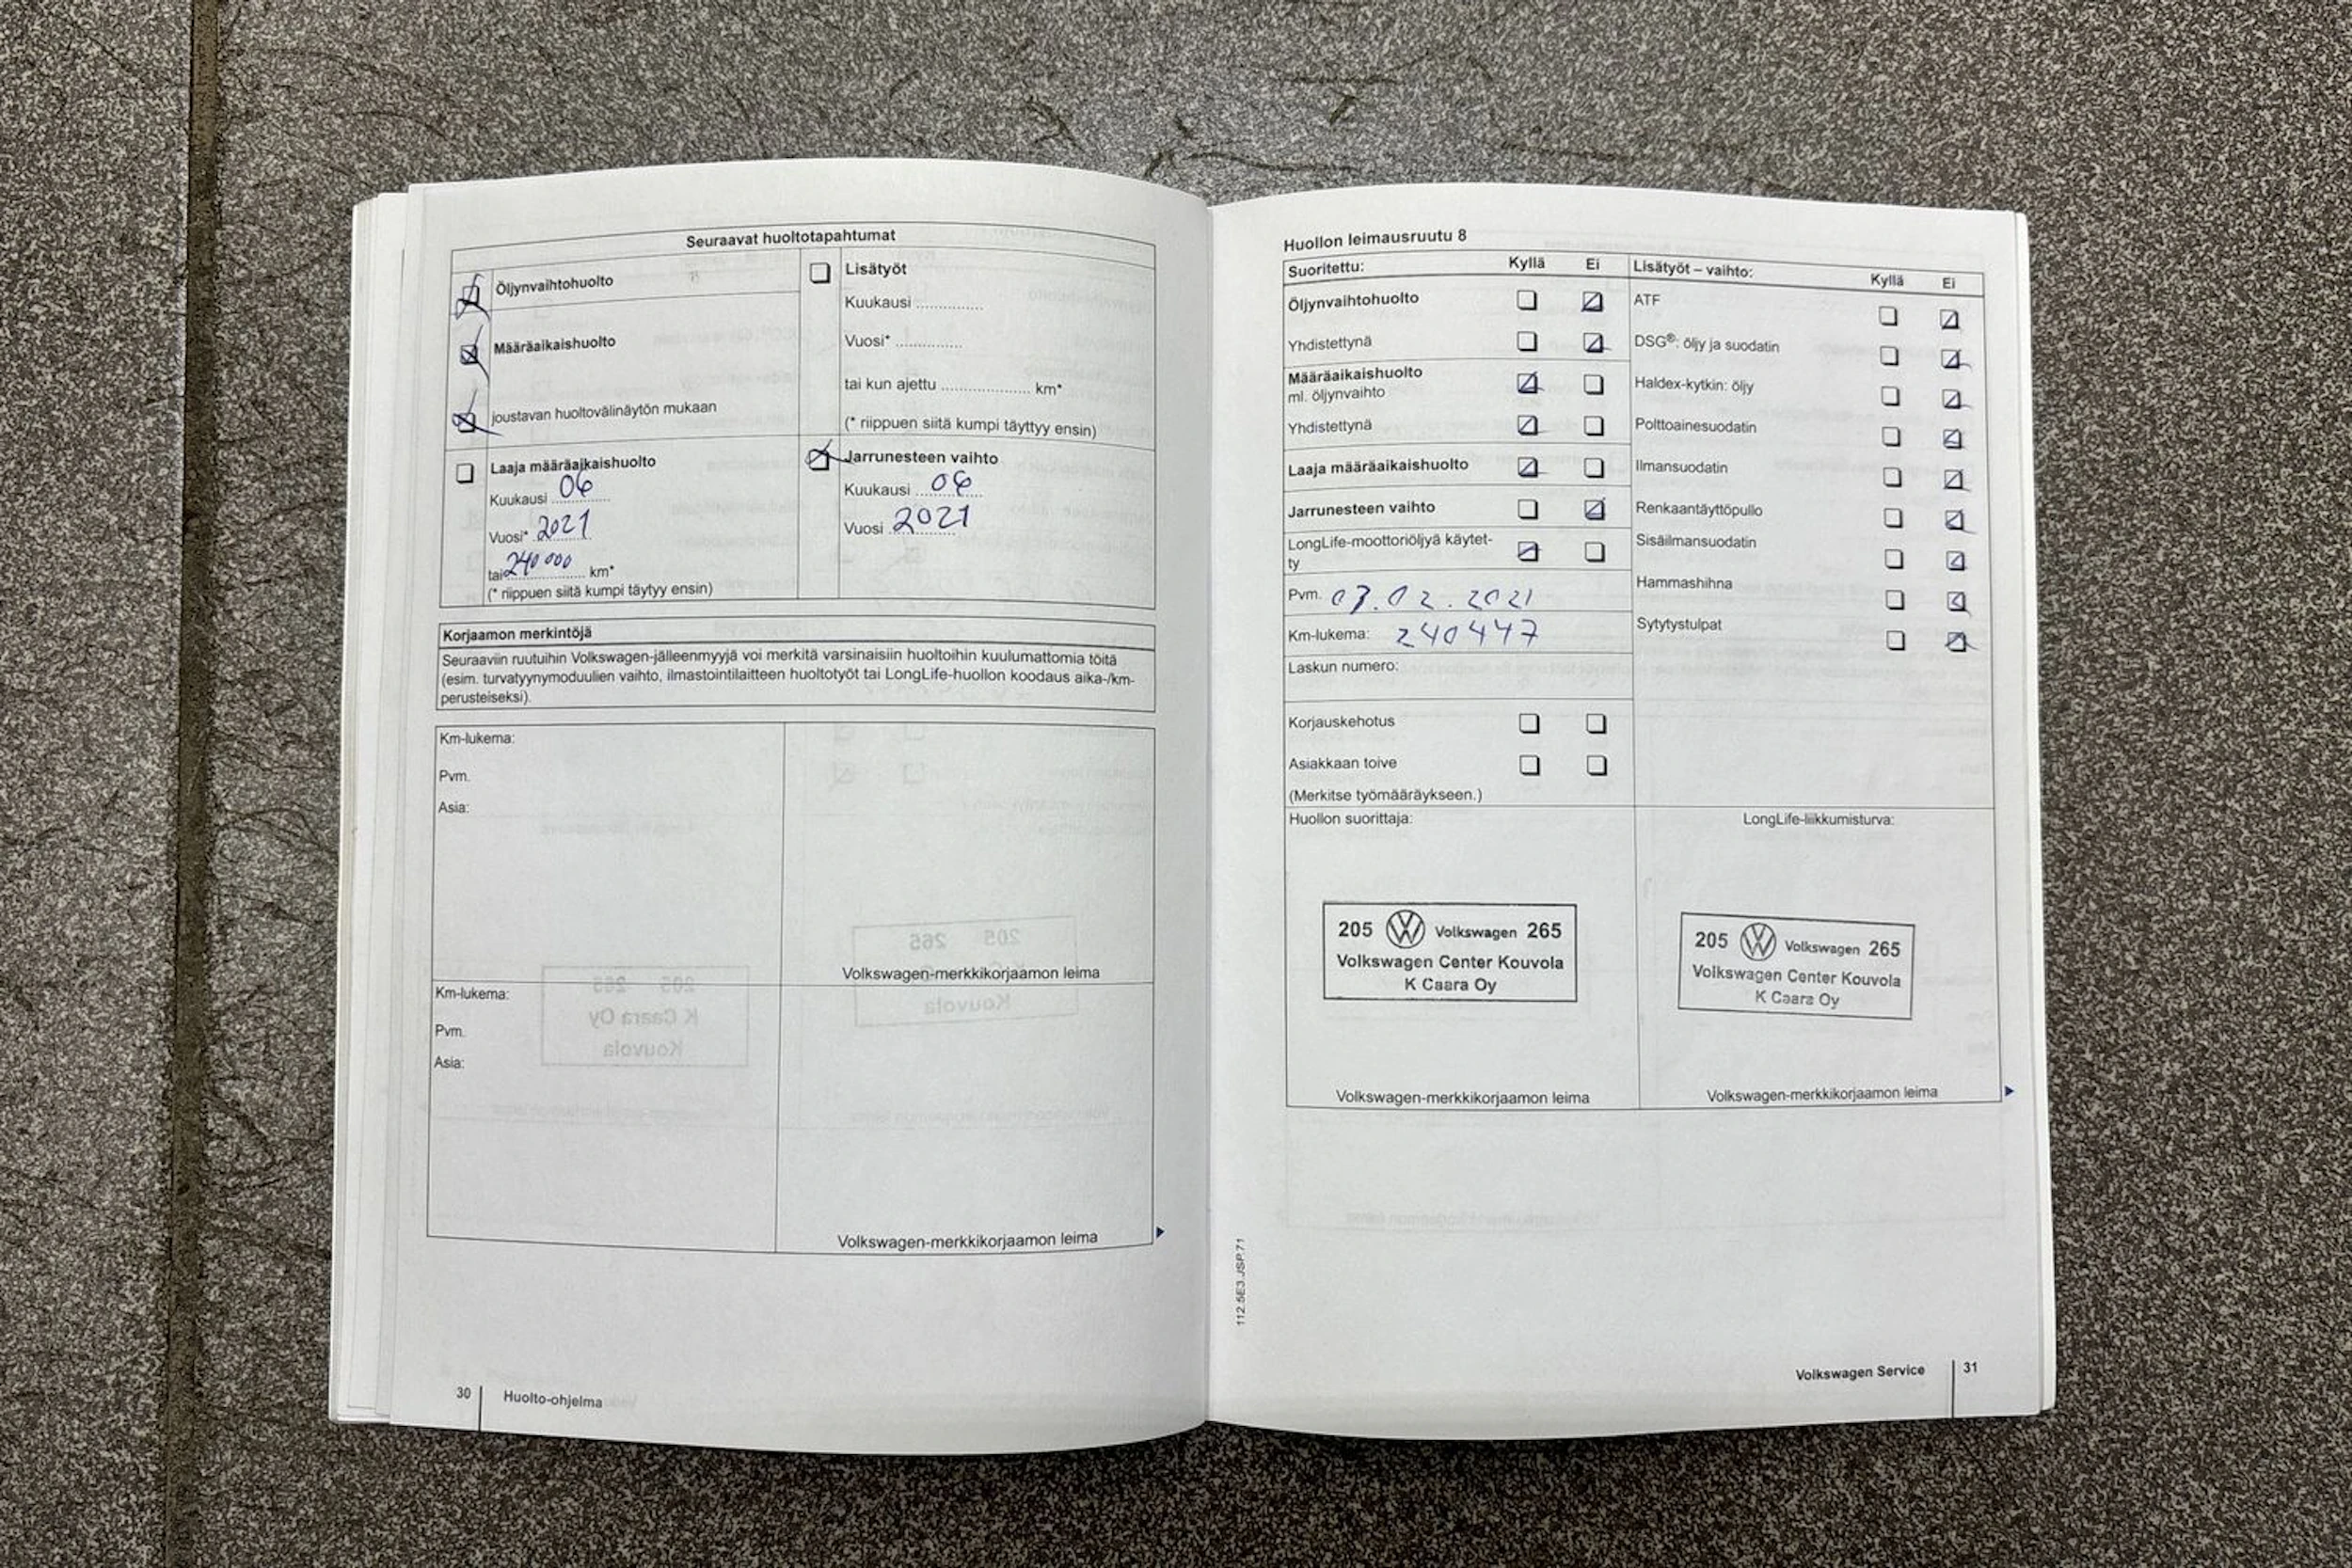 Seuraavat huoltotapahtumat
Öljynvaihtohuolto
Määräaikaishuolto
joustavan huoltovälinäytön mukaan
Lisätyöt
Kuukausi ...............
Vuosi* ...............
tai kun ajettu .................... km*
(* riippuen siitä kumpi täyttyy ensin)
Laaja määräaikaishuolto
Kuukausi 06
Vuosi* 2021
tai 240 000 km*
(* riippuen siitä kumpi täytyy ensin)
Jarrunesteen vaihto
Kuukausi 06
Vuosi 2021
Korjaamon merkintöjä
Seuraaviin ruutuihin Volkswagen-jälleenmyyjä voi merkitä varsinaisiin huoltoihin kuulumattomia töitä
(esim. turvatyynymoduulien vaihto, ilmastointilaitteen huoltotyöt tai LongLife-huollon koodaus aika-/km-
perusteiseksi).
Km-lukema:
Pvm.
Asia:
Volkswagen-merkkikorjaamon leima
Km-lukema:
Pvm.
Asia:
Volkswagen-merkkikorjaamon leima
30 Huolto-ohjelma
Huollon leimausruutu 8
Suoritettu: Kyllä Ei
Öljynvaihtohuolto
Yhdistettynä
Määräaikaishuolto
ml. öljynvaihto
Yhdistettynä
Laaja määräaikaishuolto
Jarrunesteen vaihto
LongLife-moottoriöljyä käytet-
ty
Pvm. 03.02.2021
Km-lukema: 240447
Laskun numero:
Korjauskehotus
Asiakkaan toive
(Merkitse työmääräykseen.)
Lisätyöt – vaihto: Kyllä Ei
ATF
DSG®: öljy ja suodatin
Haldex-kytkin: öljy
Polttoainesuodatin
Ilmansuodatin
Renkaantäyttöpullo
Sisäilmansuodatin
Hammashihna
Sytytystulpat
Huollon suorittaja:
205 Volkswagen 265
Volkswagen Center Kouvola
K Caara Oy
Volkswagen-merkkikorjaamon leima
LongLife-liikkumisturva:
205 Volkswagen 265
Volkswagen Center Kouvola
K Caara Oy
Volkswagen-merkkikorjaamon leima
112.5E3.JSP.71
Volkswagen Service 31